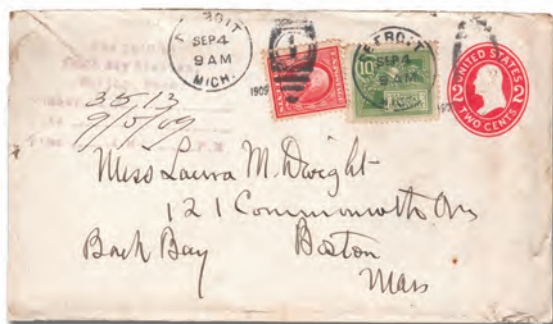 DETROIT
SEP 4
9 AM
MICH.
1909
DETROIT
SEP 4
9 AM
10
UNITED STATES
2 2
TWO CENTS
3513
9/5/09
Miss Laura M. Dwight
121 Commonwlth Av
Back Bay Boston
Mass